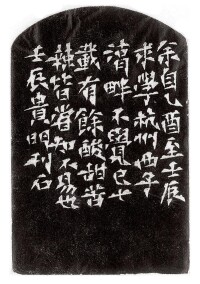 余自乙酉至壬辰
求學杭州西子
湖畔不覺已七
載有餘酸甜苦
辣皆嘗知不易也
壬辰貴明石